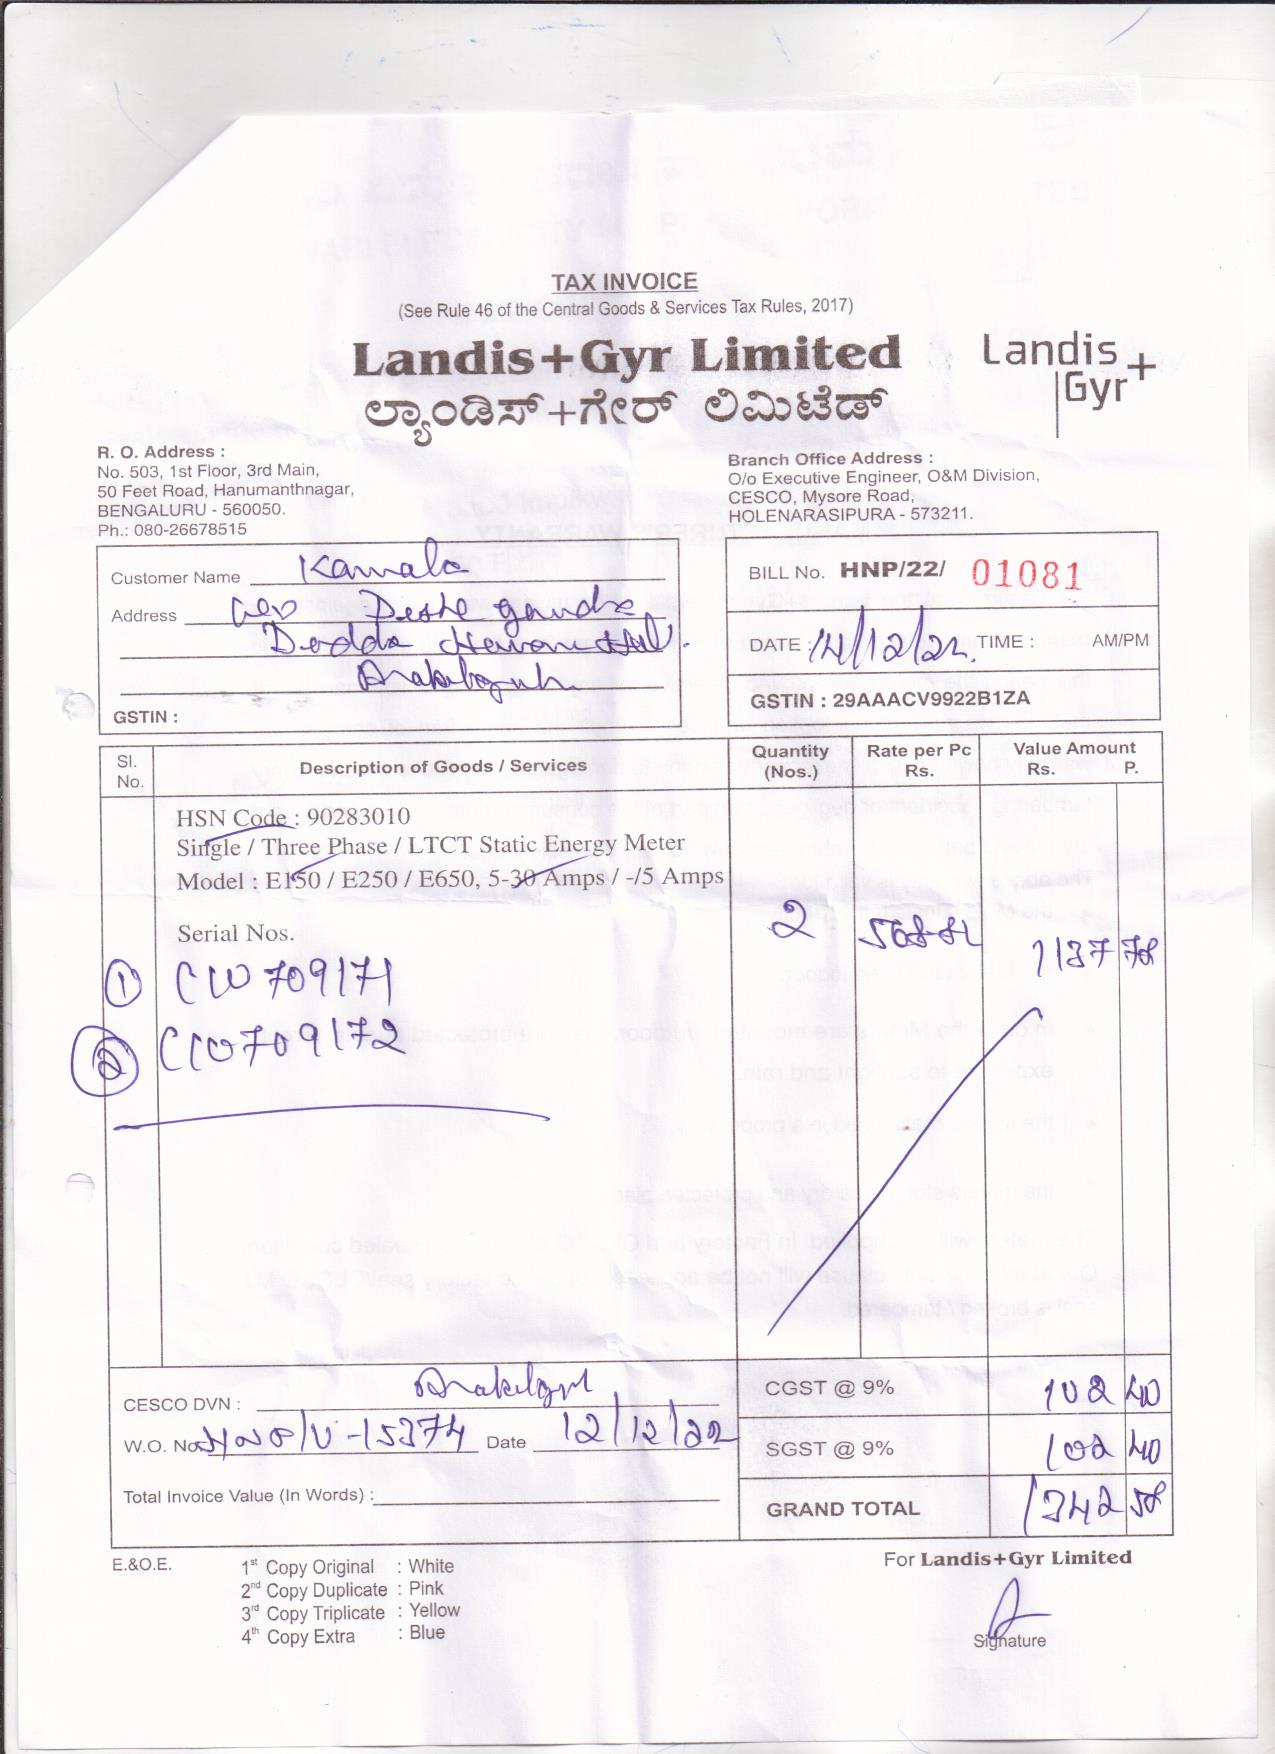 TAX INVOICE
(See Rule 46 of the Central Goods & Services Tax Rules, 2017)
Landis+Gyr Limited
ಲ್ಯಾಂಡಿಸ್+ಗೇರ್ ಲಿಮಿಟೆಡ್
Landis
Gyr+
R. O. Address :
No. 503, 1st Floor, 3rd Main,
50 Feet Road, Hanumanthnagar,
BENGALURU - 560050.
Ph.: 080-26678515
Branch Office Address :
O/o Executive Engineer, O&M Division,
CESCO, Mysore Road,
HOLENARASIPURA - 573211.
Customer Name Kamala
Address
Dodda
GSTIN :
BILL No. HNP/22/ 01081
DATE : 14/12/22. TIME : AM/PM
GSTIN : 29AAACV9922B1ZA
Sl. No. Description of Goods / Services Quantity (Nos.) Rate per Pc Rs. Value Amount Rs. P.
HSN Code : 90283010
Single / Three Phase / LTCT Static Energy Meter
Model : E150 / E250 / E650, 5-30 Amps / -/5 Amps
Serial Nos. 2 1137 78
1 709171
2 709172
CESCO DVN :
W.O. No. Date 12/12/22
Total Invoice Value (In Words) :
CGST @ 9% 102 40
SGST @ 9% 102 40
GRAND TOTAL 1342 58
E.&O.E.
1st Copy Original : White
2nd Copy Duplicate : Pink
3rd Copy Triplicate : Yellow
4th Copy Extra : Blue
For Landis+Gyr Limited
Signature